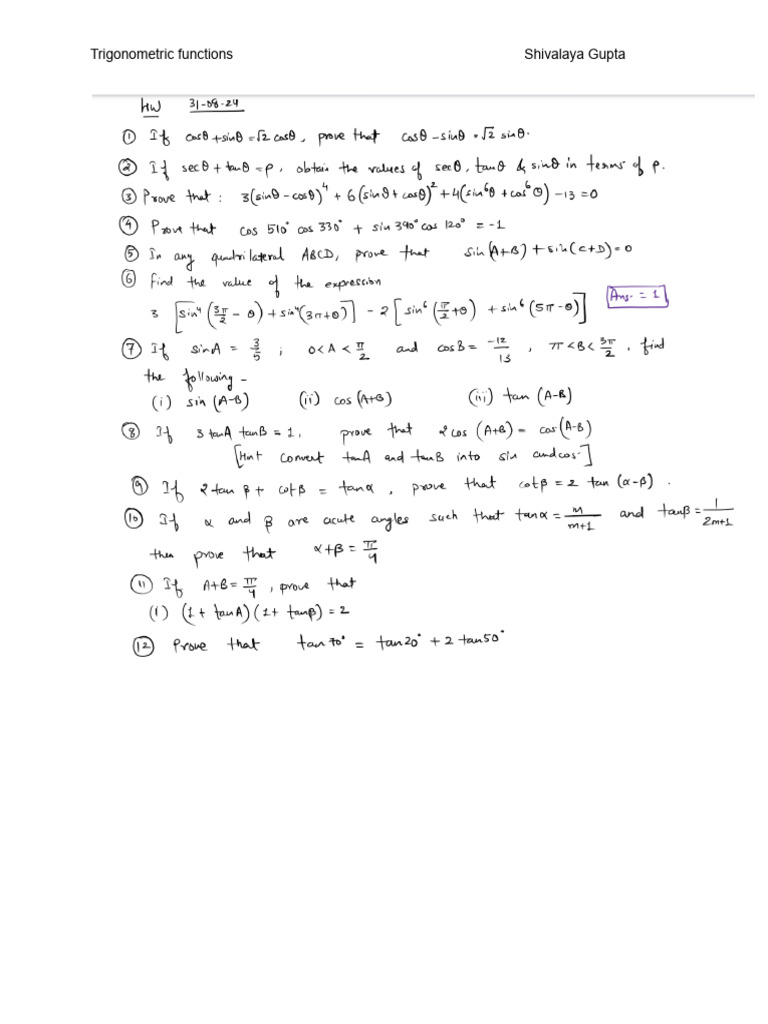 Trigonometric functions Shivalaya Gupta
HW 31-08-24
① If cosθ+sinθ=√2 cosθ, prove that cosθ-sinθ=√2 sinθ.
② If secθ+tanθ=p, obtain the values of secθ, tanθ & sinθ in terms of p.
③ Prove that : 3(sinθ-cosθ)⁴ + 6(sinθ+cosθ)² + 4(sin⁶θ+cos⁶θ) -13=0
④ Prove that cos 510° cos 330° + sin 390° cos 120° = -1
⑤ In any quadrilateral ABCD, prove that sin(A+B)+sin(C+D)=0
⑥ Find the value of the expression
3 [sin⁴(3π/2 - θ) + sin⁴(3π+θ)] - 2[sin⁶(π/2+θ) + sin⁶(5π-θ)] Ans. = 1
⑦ If sinA = 3/5 ; 0<A<π/2 and cosB = -12/13, π<B<3π/2, find
the following -
(i) sin (A-B) (ii) cos (A+B) (iii) tan (A-B)
⑧ If 3 tanA tanB = 1, prove that 2cos (A+B) = cos(A-B)
[Hint convert tanA and tanB into sin and cos]
⑨ If 2tan β + cotβ = tanα, prove that cotβ = 2 tan (α-β).
⑩ If α and β are acute angles such that tanα = m/m+1 and tanβ = 1/2m+1
then prove that α+β = π/4
⑪ If A+B = π/4, prove that
(i) (1+tanA)(1+tanB) = 2
⑫ Prove that tan70° = tan20° + 2 tan50°